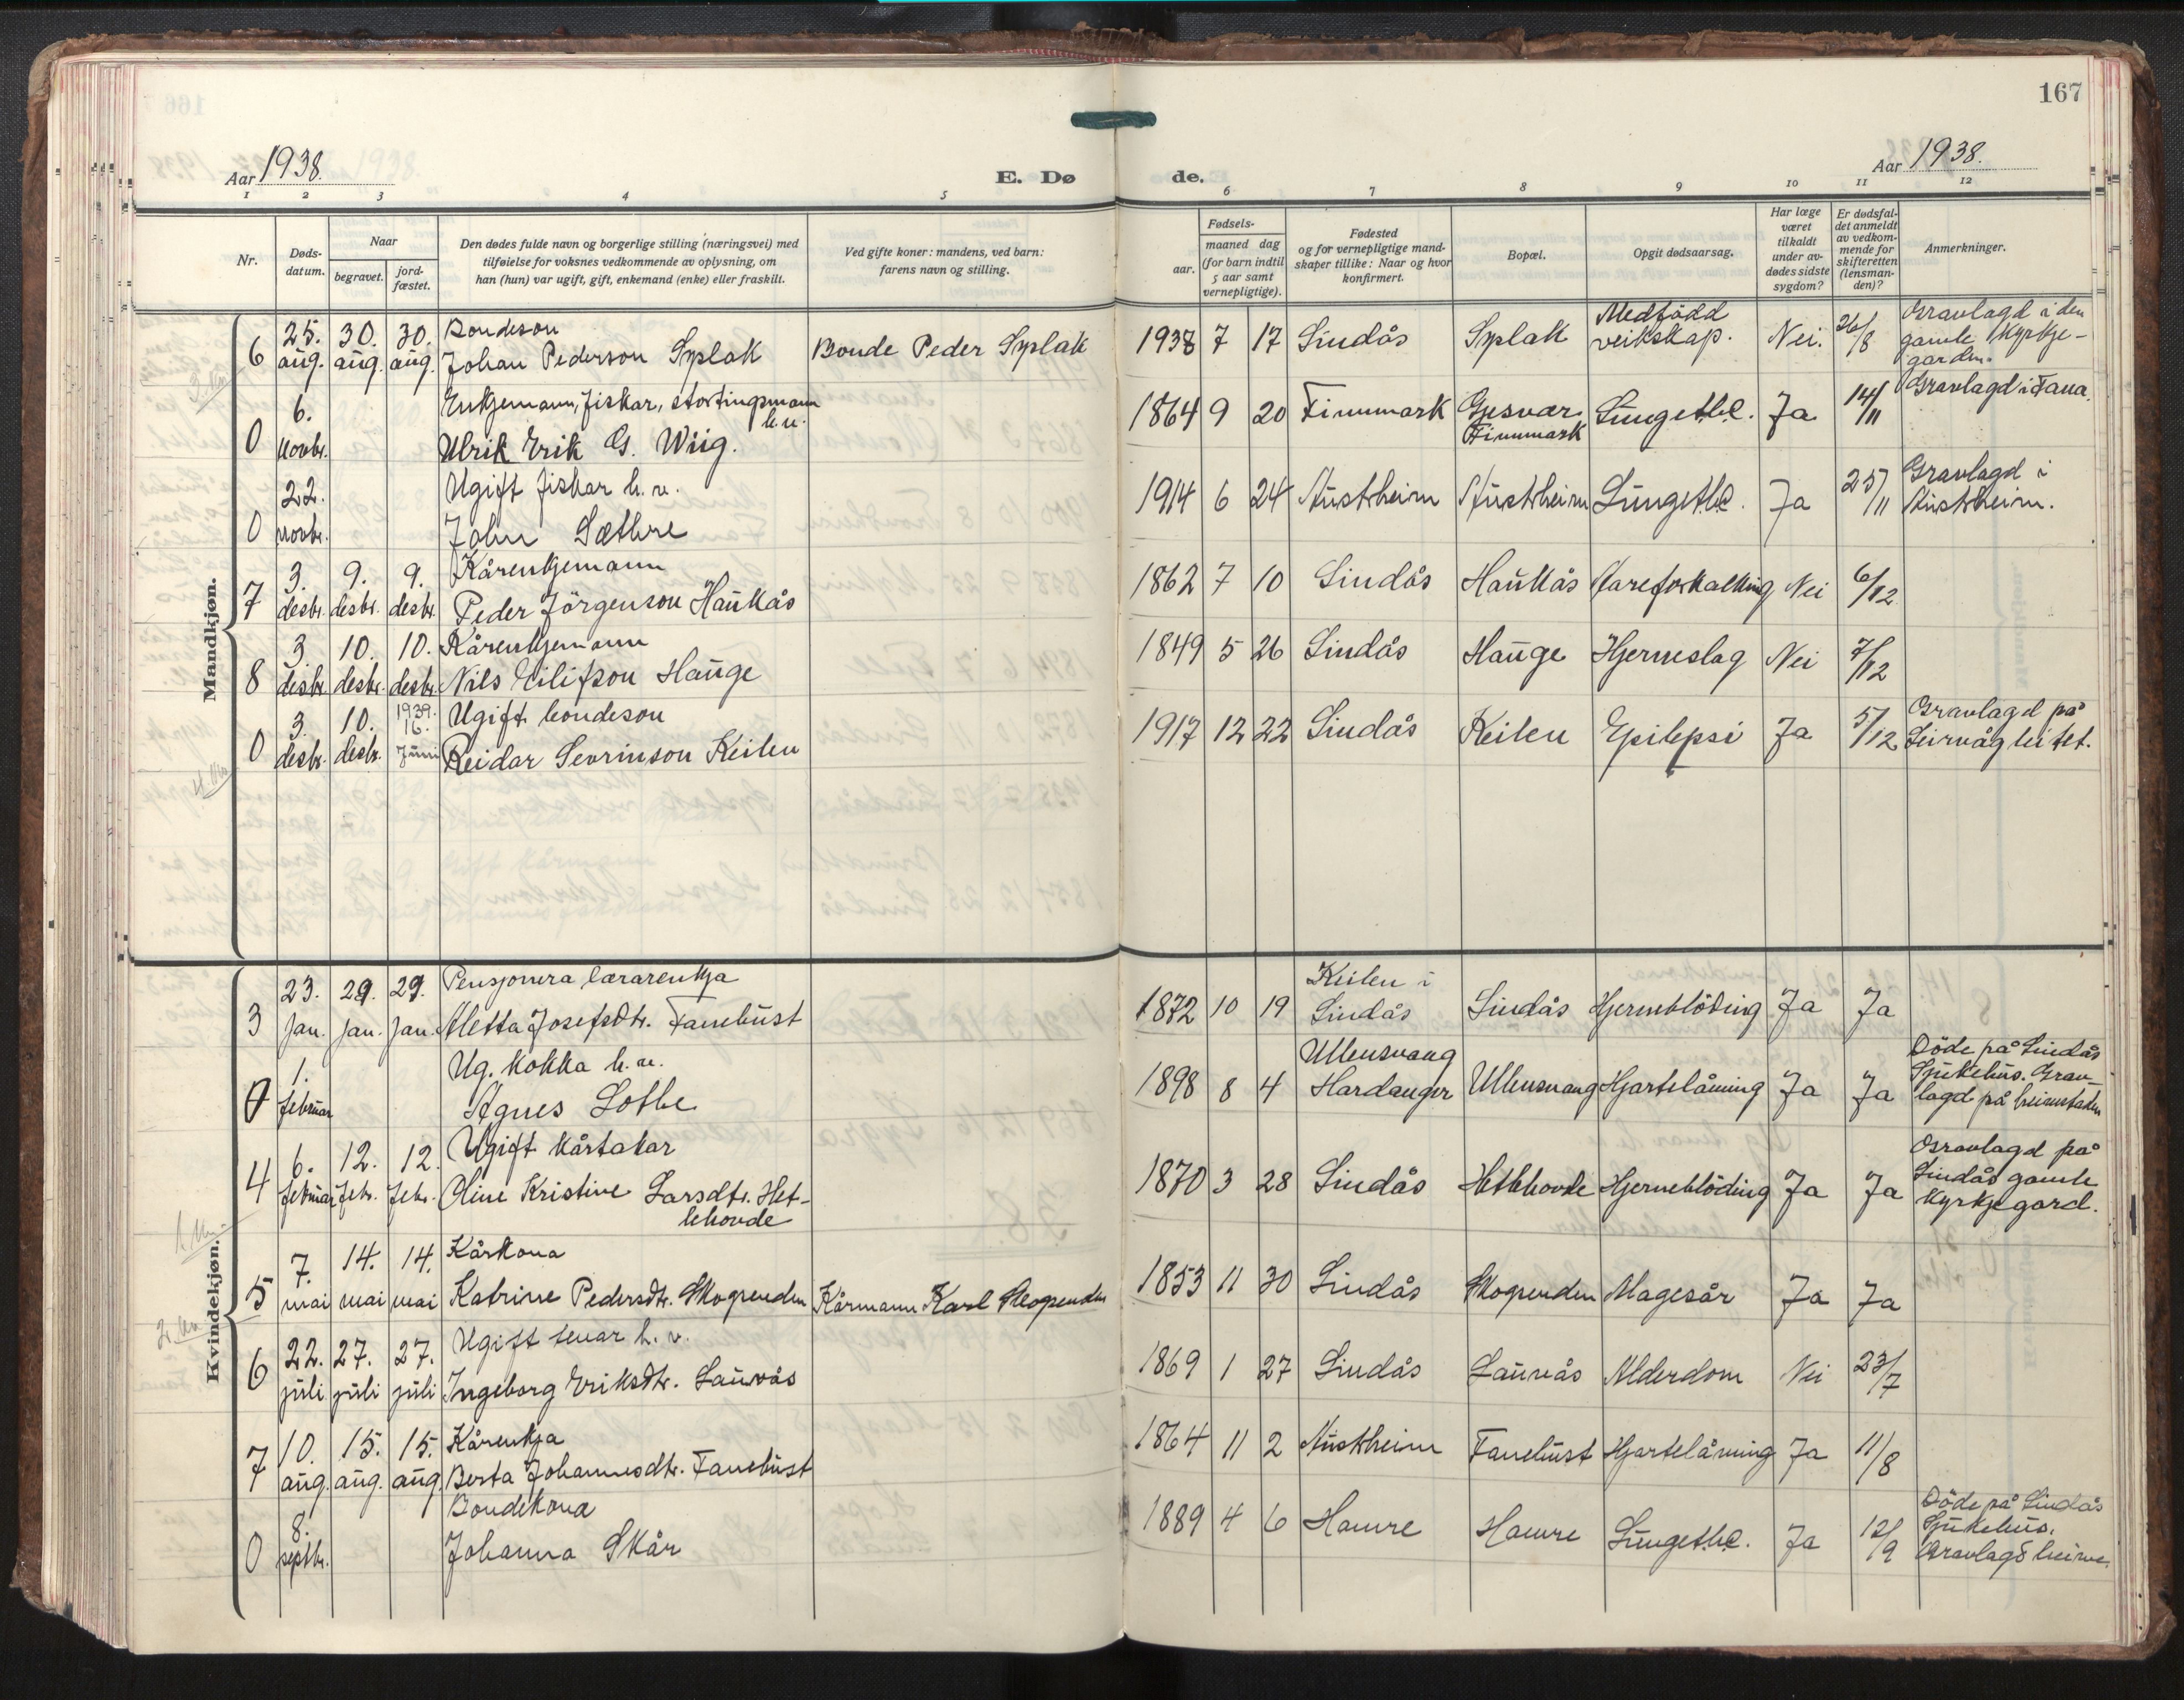 167
Aar 1938.
E. Døde.
Aar 1938.
1 2 3 4 5 6 7 8 9 10 11 12
Nr.
Døds-
datum.
Naar
begravet.
jord-
fæstet.
Den dødes fulde navn og borgerlige stilling (næringsvei) med
tilføielse for voksnes vedkommende av oplysning, om
han (hun) var ugift, gift, enkemand (enke) eller fraskilt.
Ved gifte koner: mandens, ved barn:
farens navn og stilling.
Fødsels-
aar.
maaned dag
(for barn indtil
5 aar samt
vernepligtige).
Fødested
og for vernepligtige mand-
skaper tillike: Naar og hvor
konfirmert.
Bopæl.
Opgit dødsaarsag.
Har læge
været
tilkaldt
under av-
dødes sidste
sygdom?
Er dødsfal-
det anmeldt
av vedkom-
mende for
skifteretten
(lensman-
den)?
Anmerkninger.
Mandkjøn.
6 25. aug. 30. aug. 30. aug. Bondeson
Johan Pederson Syslak Bonde Peder Syslak 1938 7 17 Lindås Syslak Medfödd veikskap. Nei. 26/8 Gravlagd i den
gamle kyrkje-
garden.
0 6. novbr. Enkjemann, fiskar, stortingsmann
h.v.
Ulrik Erik G. Wiig. 1864 9 20 Finnmark Gjesvær Finnmark Lungetb.c. Ja 14/11 Gravlagd i Fana.
0 22. novbr. Ugift fiskar h.v.
John Sæthre 1914 6 24 Austrheim Austrheim Lungetb.c. Ja 25/11 Gravlagd i
Austrheim.
7 3. desbr. 9. desbr. 9. desbr. Kårenkjemann
Peder Jörgenson Haukås 1862 7 10 Lindås Haukås Åreforkalking Nei 6/12
8 3. desbr. 10. desbr. 10. desbr. Kårenkjemann
Nils Eilifson Hauge 1849 5 26 Lindås Hauge Hjerneslag Nei 7/12
0 3. desbr. 10. desbr. 1939. 16. juni Ugift bondeson
Reidar Sevrinson Keilen 1917 12 22 Lindås Keilen Epilepsi Ja 5/12 Gravlagd på
Leirvågleitet.
Kvindekjøn.
3 23. jan. 29. jan. 29. jan. Pensjonera lærarenkja
Aletta Josefsdtr. Fanebust 1872 10 19 Keilen i Lindås Lindås Hjerneblöding Ja Ja
0 1. februar Ug. kokka h.v.
Agnes Lothe 1898 8 4 Ullensvang Hardanger Ullensvang Hjartelåming Ja Ja Döde på Lindås
Sjukehus. Grav-
lagd på heimstaden
4 6. februar 12. febr. 12. febr. Ugift kårtakar
Oline Kristine Larsdtr. Het-
lehovde 1870 3 28 Lindås Hetlehovde Hjerneblöding Ja Ja Gravlagd på
Lindås gamle
kyrkjegard.
5 7. mai 14. mai 14. mai Kårkona
Katrine Pedersdtr. Skogrenden Kårmann Karl Skogrenden 1853 11 30 Lindås Skogrenden Magesår Ja Ja
6 22. juli 27. juli 27. juli Ugift tenar h.v.
Ingeborg Eriksdtr. Lauvås 1869 1 27 Lindås Lauvås Alderdom Nei 23/7
7 10. aug. 15. aug. 15. aug. Kårenkja
Berta Johannesdtr. Fanebust 1864 11 2 Austrheim Fanebust Hjartelåming Ja 11/8
0 8. septbr. Bondekona
Johanna Skår 1889 4 6 Hamre Hamre Lungetb.c. Ja 12/9 Döde på Lindås
Sjukehus.
Gravlagd heime.